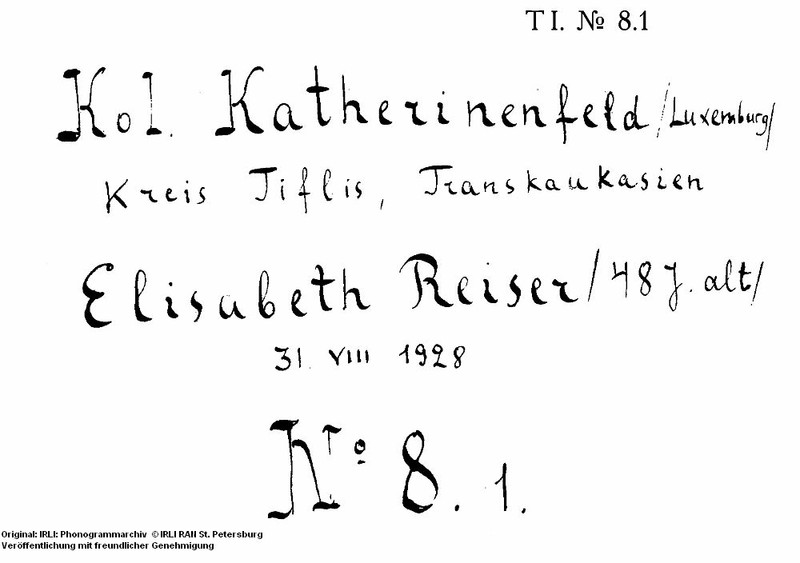 T I. № 8.1
Kol. Katherinenfeld /Luxemburg/
Kreis Tiflis, Transkaukasien
Elisabeth Reiser /48 J. alt/
31. VIII 1928
№ 8. 1.
Original: IRLI: Phonogrammarchiv © IRLI RAN St. Petersburg
Veröffentlichung mit freundlicher Genehmigung